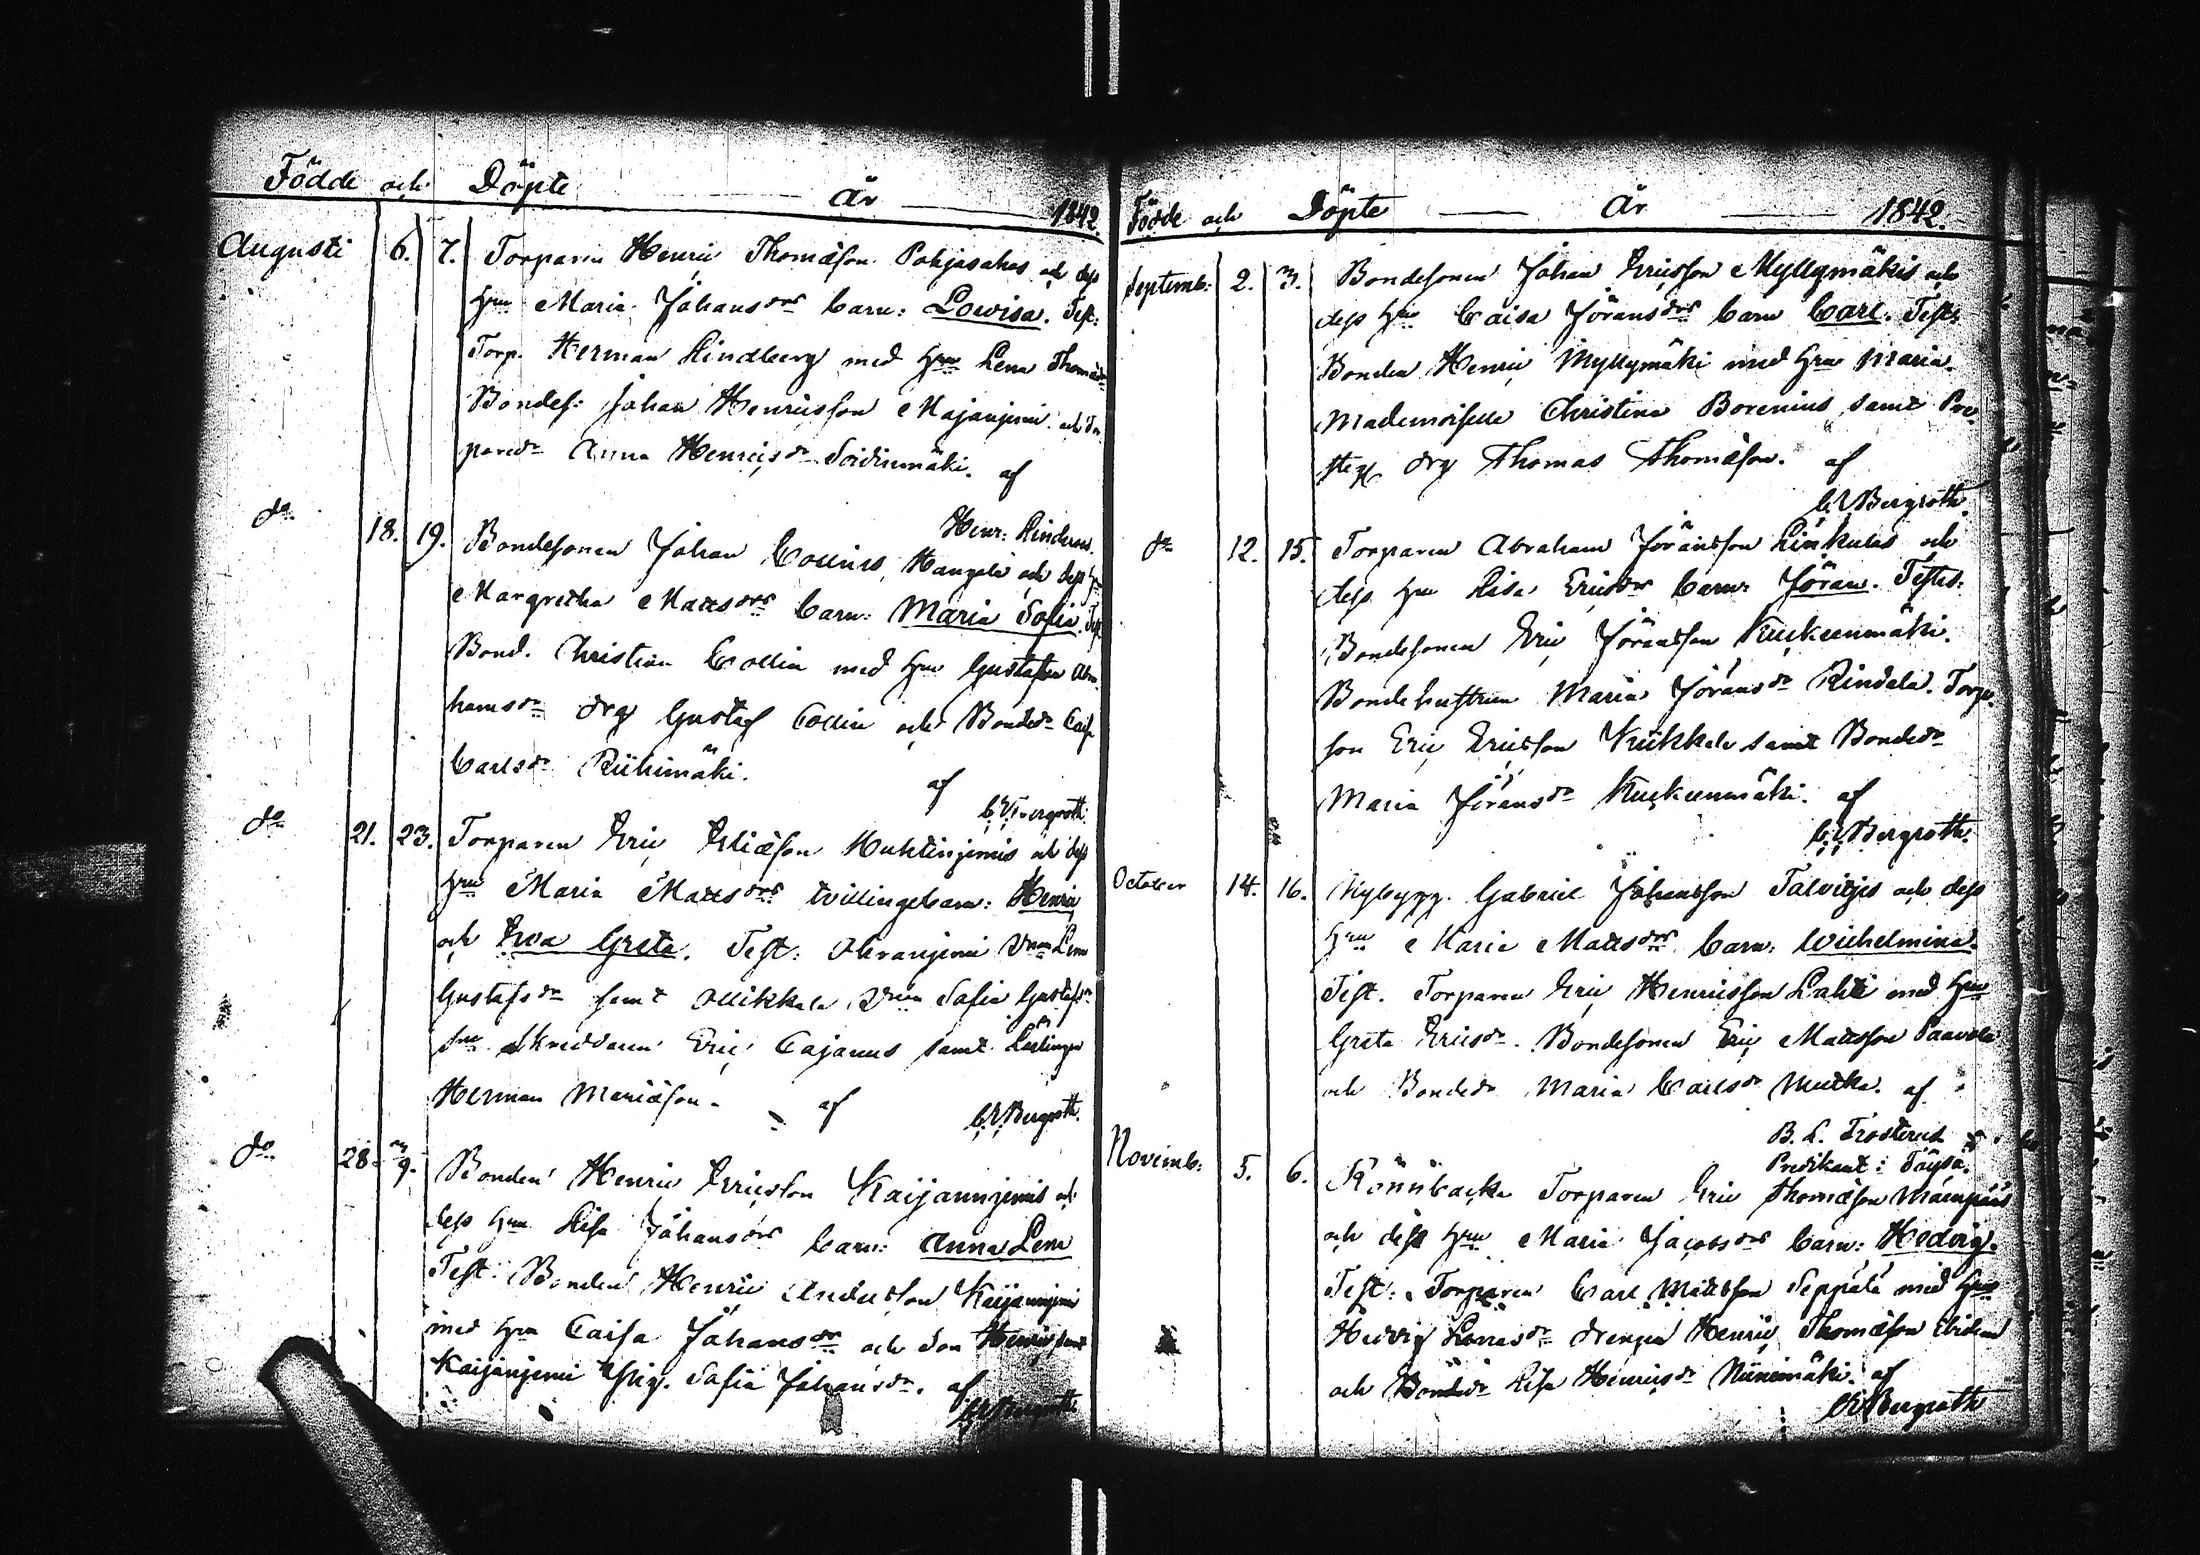 Födde och Döpte År 1842
Augusti 6. 7. Torparen Henric Thomæson Pohjasahos och dess
Hru Maria Johansdrs barn: Lowisa. Test:
Torp. Herman Lindberg med Hru Lena Thomædr
Bondes: Johan Henricsson Majanjemi och
Anna Henricsdr Soidinmäki. af
Henr:
do 18. 19. Bondesonen Johan Collins, Hangala och dess
Margretha Mattsdrs barn: Maria Sofia.
Bond. Christian Collin med Hru Gustafva Abra
hamsdr drg Gustaf Collin och Bondedr Caisa
Carlsdr Riihimäki. af
C.E. Bergroth.
do 21. 23. Torparen Eric Eliæson Huhtinjemis och dess
Hru Maria Mattsdrs tvillingebarn: Henric
och Ewa Greta. Test: Lena
Gustafsdr samt Ollikkala Sofia Gustafsdr
Skreddaren Eric Cajanus samt Lärlingen
Herman Mariæson. af
C.E. Bergroth.
do 28. 9. Bonden Henric Ericsson Kaijannjemis och
dess Hru Lisa Johansdrs barn: Anna Lena
Test: Bonden Henric Andersson Kaijannjemi
med Hru Caisa Johansdr och Son Henric samt
Kaijanjemi Sofia Johansdr. af
C.E. Bergroth
Födde och Döpte År 1842.
Septemb: 2. 3. Bondesonen Johan Ericsson Myllymäkis och
dess Hru Caisa Jöransdrs barn Carl. Test:
Bonden Henric Myllymäki med Hru Maria.
Mademoiselle Christina Borenius samt
drg Thomas Thomæson. af
C.E. Bergroth.
do 12. 15. Torparen Abraham Jöransson Linkulas och
dess Hru Lisa Ericsdrs barn: Jöran. Testes:
Bondesonen Eric Jöransson Kuckunmäki.
Bondehustrun Maria Jöransdr Rindala. Torpa
son Eric Ericsson Krükkala samt Bondedr
Maria Jöransdr Kuckunmäki. af
C.E. Bergroth.
October 14. 16. Nybygg. Gabriel Johansson Talvitjes och dess
Hru Maria Mattsdrs barn: Wilhelmina.
Test. Torparen Eric Henricsson Lahti med Hru
Greta Ericsdr. Bondesonen Eric Mattsson Paavola
och Bondedr Maria Carlsdr Mutka. af
B. L. Frosterus
Predikant i Töysä.
Novemb: 5. 6. Rönnbacka Torparen Eric Thomæson Mäenpääs
och dess Hru Maria Jacobsdrs barn: Hedvig.
Test: Torparen Carl Mattsson Seppälä med Hru
Hedvig drengen Henric Thomæson ibidem
och Bondedr Lisa Henricsdr Niinimäki. af
C.E. Bergroth